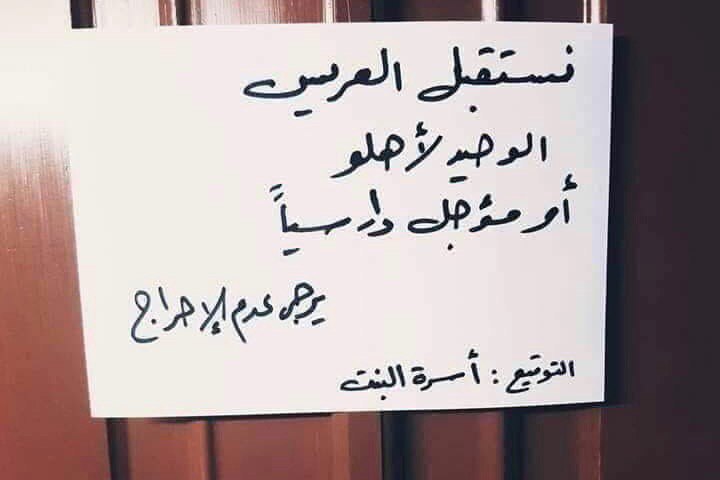 نستقبل العريس
الوحيد لأهلو
أو مؤجل دارسياً
يرجى عدم الإحراج
التوقيع : أسرة البنت